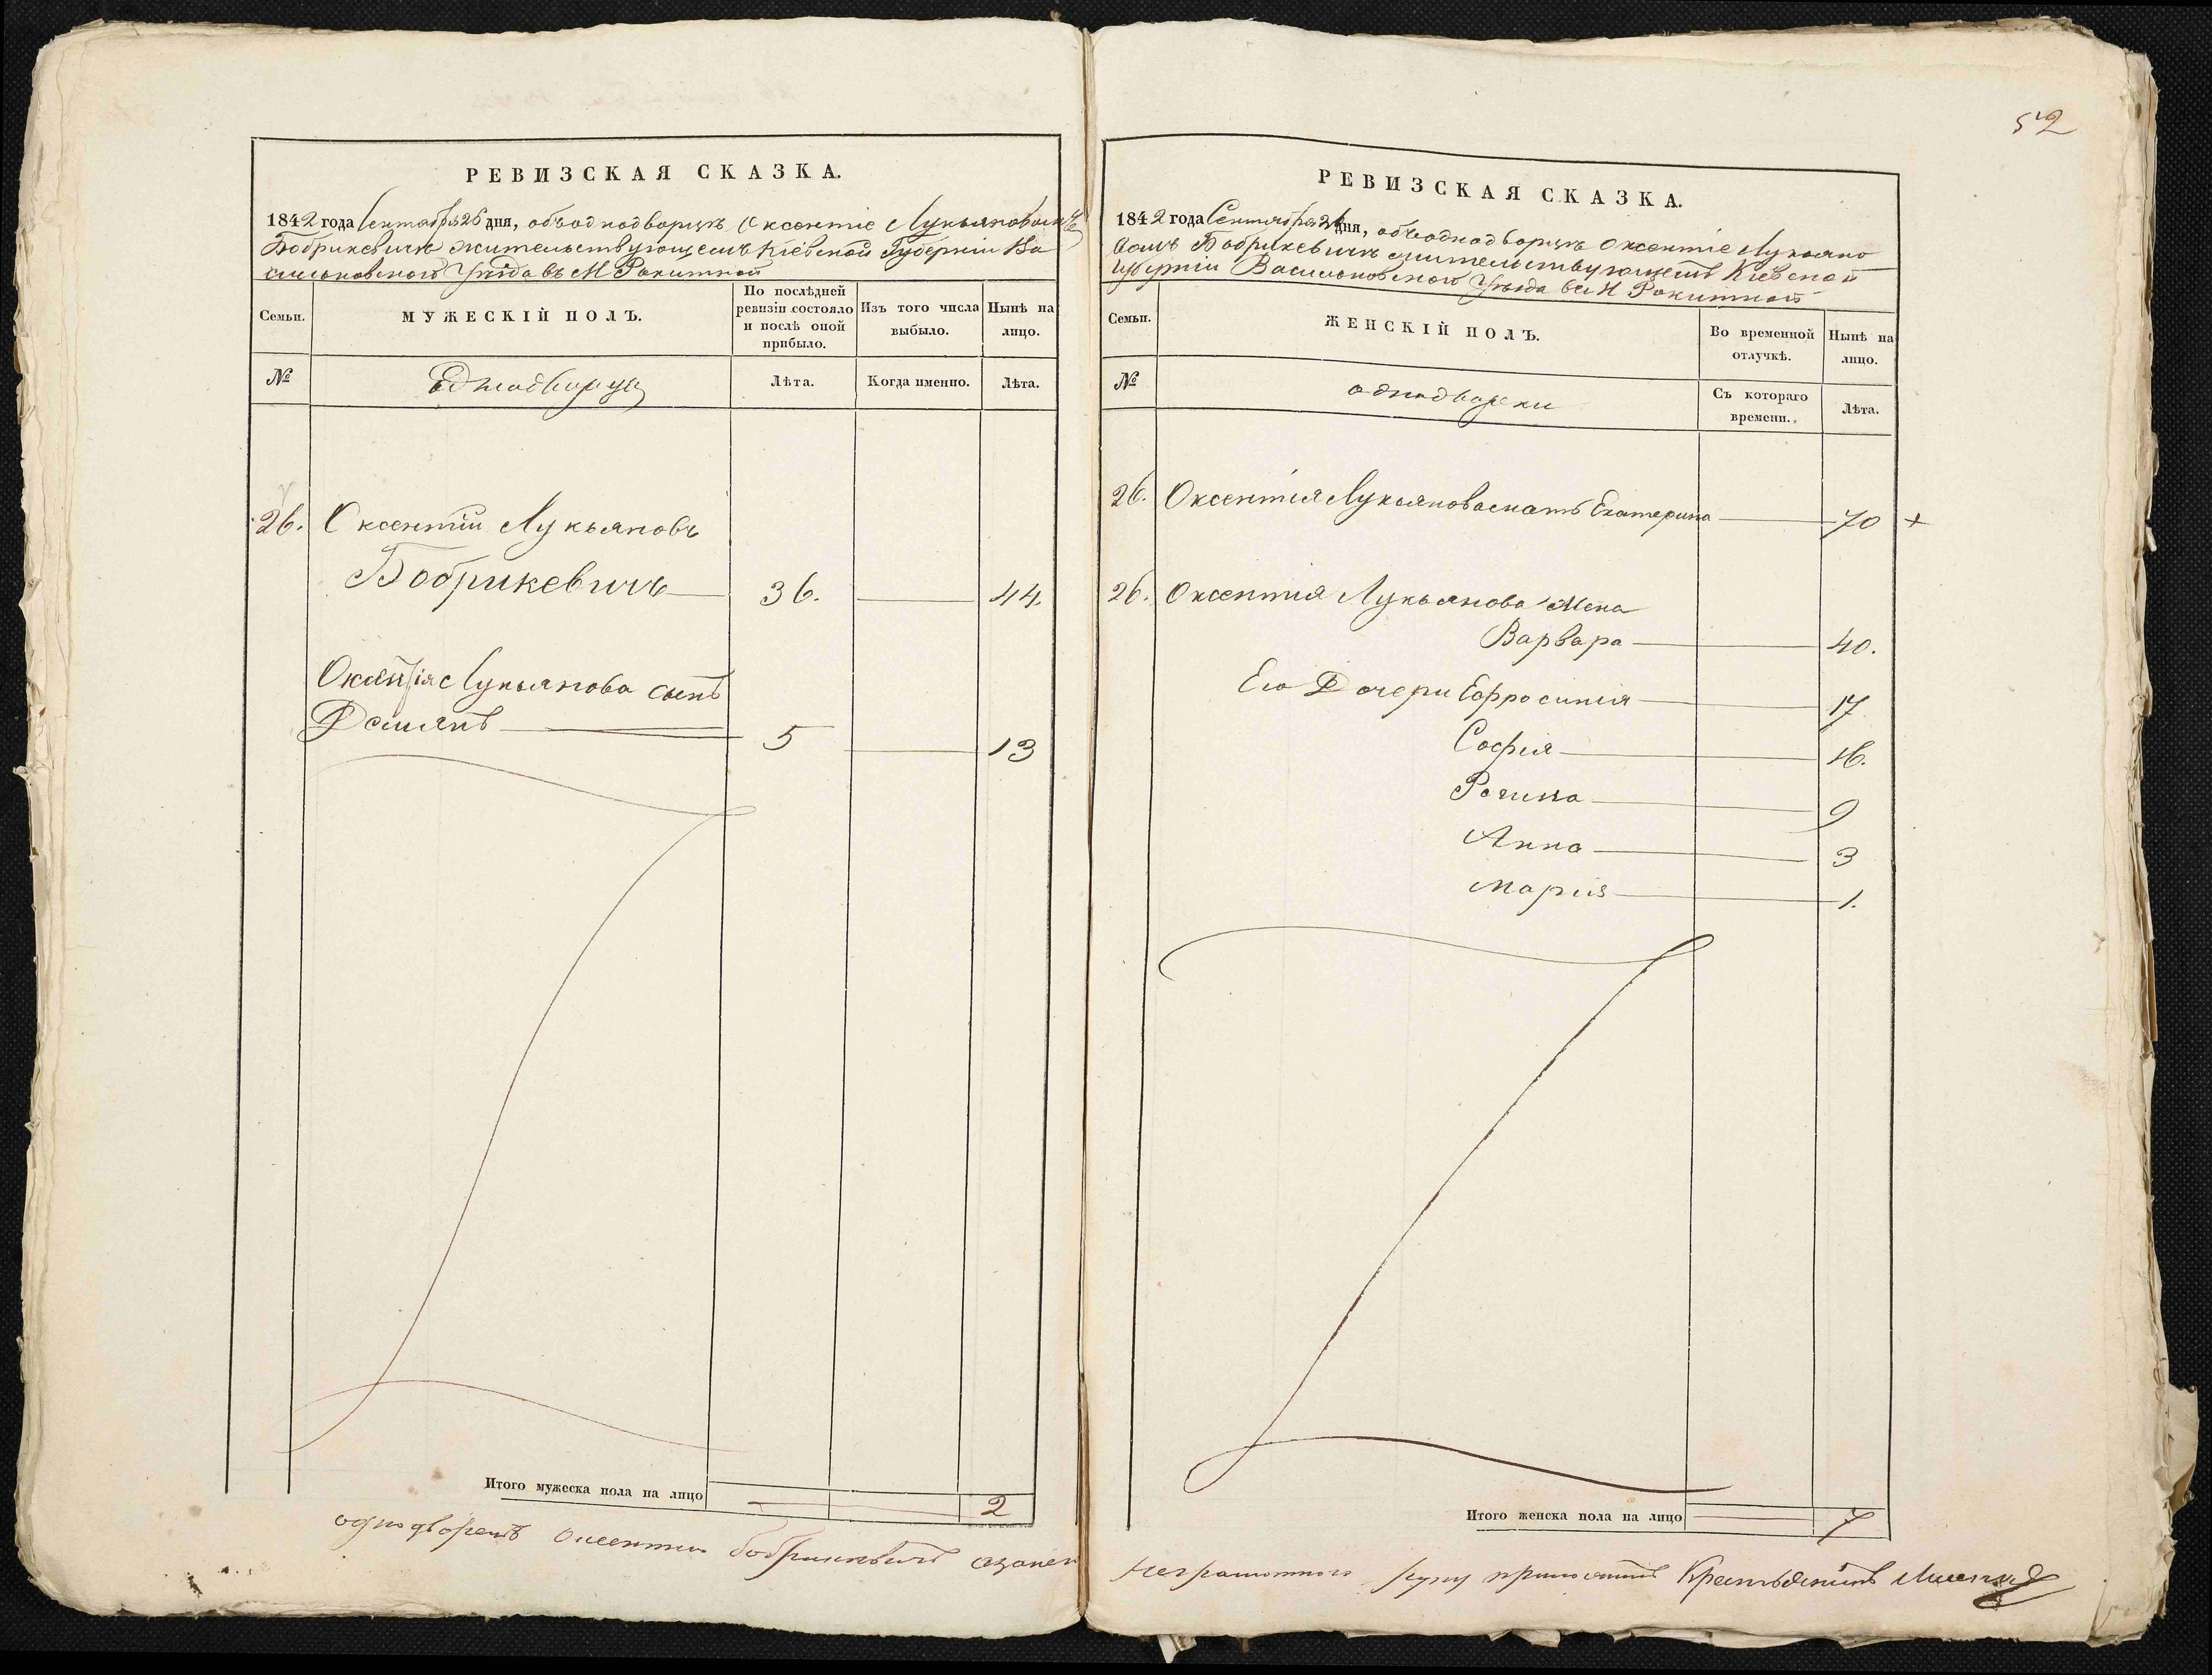 РЕВИЗСКАЯ СКАЗКА.
1842 года Сентября 26 дня, объ однодворцѣ Оксентіе Лукьяновомъ
Бобрикевичѣ жительствующемъ Кіевской Губерніи Ва
сильковского Уѣзда въ М Ракитной
Семьи.
МУЖЕСКІЙ ПОЛЪ.
По послѣдней
ревизіи состояло
и послѣ оной
прибыло.
Изъ того числа
выбыло.
Нынѣ на
лицо.
№
Однодворцы
Лѣта.
Когда именно.
Лѣта.
26. Оксентій Лукьяновъ
Бобрикевичь 36. 44.
Оксентія Лукьянова сынъ
Демянъ 5 13
Итого мужеска пола на лицо 2
однодворецъ Оксентій бобрикевичъ
52
РЕВИЗСКАЯ СКАЗКА.
1842 года Сентября 26 дня, объ однодворцѣ Оксентіе Лукьяно
вомъ Бобрикевичѣ жительствующемъ Кіевской
Губерніи Васильковского Уѣзда въ М Ракитной
Семьи.
ЖЕНСКІЙ ПОЛЪ.
Во временной
отлучкѣ.
Нынѣ на
лицо.
№
однодворки
Съ котораго
времени.
Лѣта.
26. Оксентія Лукьянова мать Екатерина 70 +
26. Оксентія Лукьянова жена
Варвара 40.
Его Дочери Ефросинія 17
Софія 16.
Регина 9
Анна 3
Марія 1.
Итого женска пола на лицо 7
неграмотного руку приложилъ